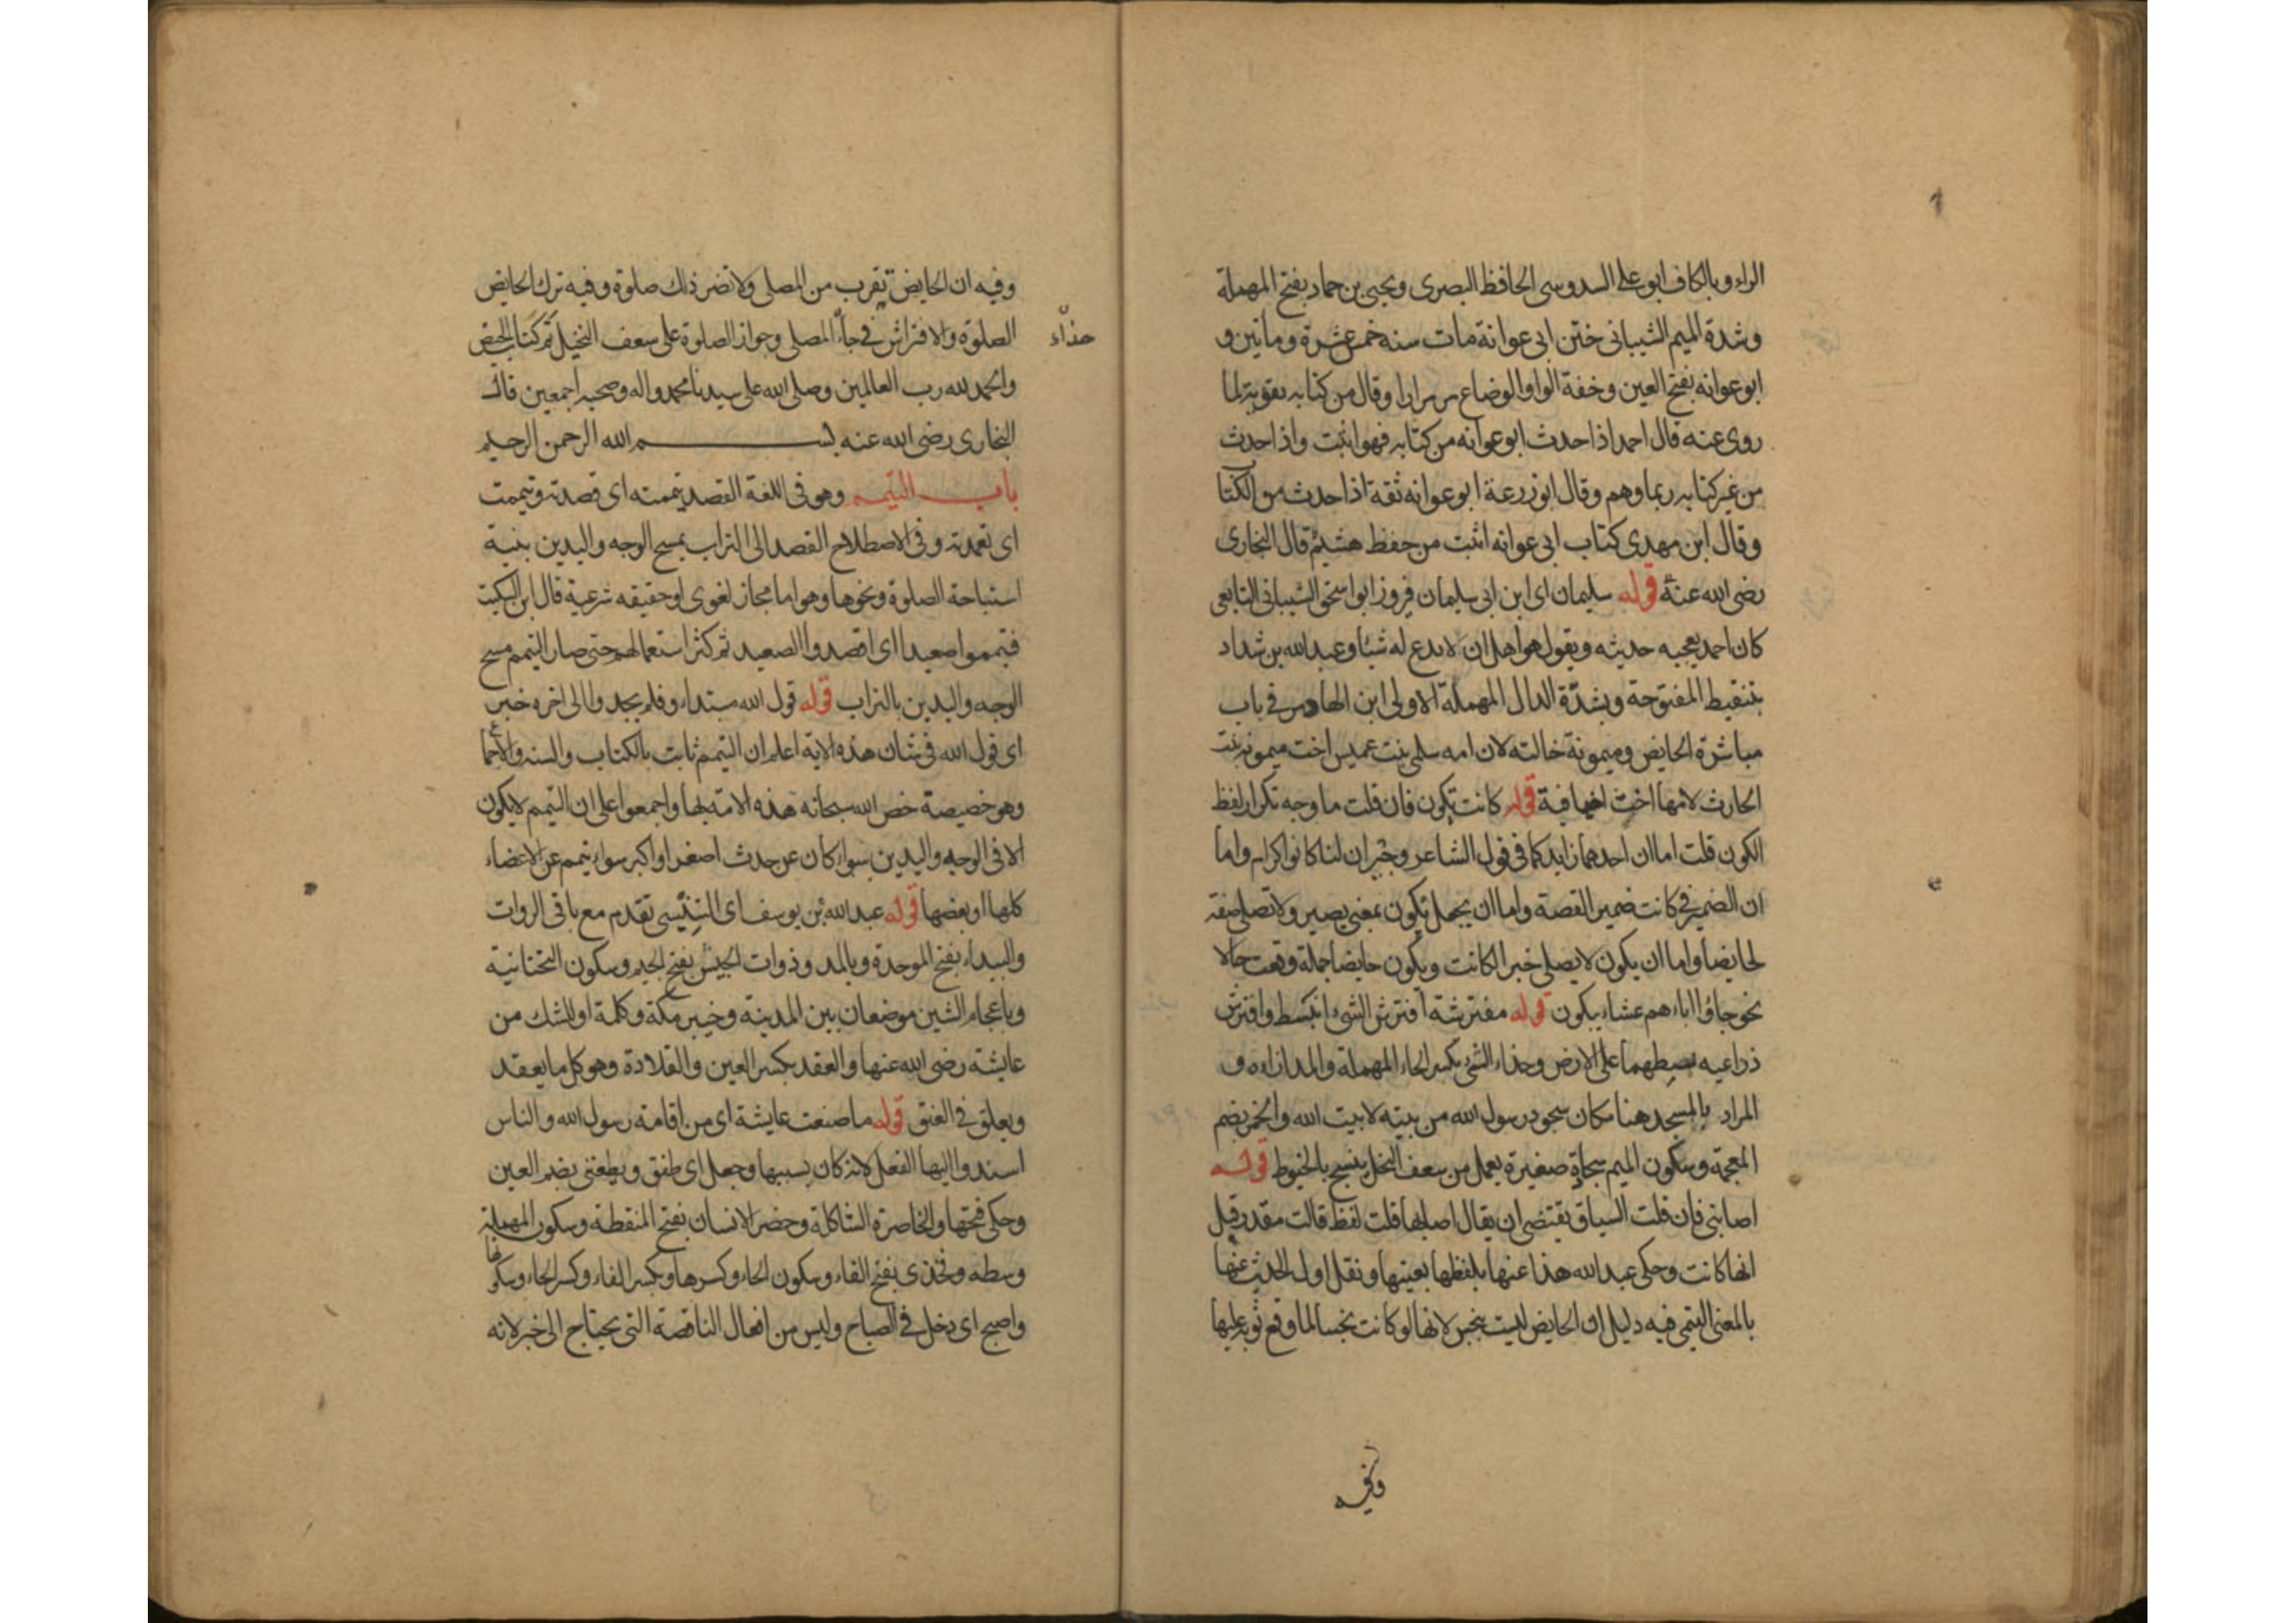 الراء وبالكاف ابو علي السدوسي الحافظ البصري ويحيى بن حماد بفتح المهملة
وشدة الميم الشيباني ختن ابي عوانة مات سنه خمس عشرة ومأتين و
ابو عوانه بفتح العين وخفة الواو الوضاع مر مرارا وقال من كتابه تقوية لما
روى عنه قال احمد اذا حدث ابو عوانه من كتابه فهو اثبت واذا حدث
من غير كتابه ربما وهم وقال ابو زرعة ابو عوانه ثقة اذا حدث من الكتا
وقال ابن مهدي كتاب ابي عوانه اثبت من حفظ هشيم قال البخاري
رضى الله عنه قوله سليمان اي ابن ابي سليمان فيروز ابو اسحق الشيباني التابعي
كان احمد يعجبه حديثه ويقول هو اهل ان لا يدع له شيئا وعبد الله بن شداد
بتنقيط المفتوحة وبشدة الدال المهملة الاولى ابن الهاد مر في باب
مباشرة الحايض وميمونة خالته لان امه سلمى بنت عميس اخت ميمونه بنت
الحارث لامها اخت اخيافية قوله كانت تكون فان قلت ما وجه تكرار لفظ
الكون قلت اما ان احدهما زايد كما في قول الشاعر وجيران لنا كانوا كرام واما
ان الضمير في كانت ضمير القصة واما ان يجعل تكون بمعنى يصير ولا تصلي صفة
لحايضا واما ان يكون لا يصلي خبرا لكانت ويكون حايضا جملة وقعت حالا
نحو جاؤا اباءهم عشاء يبكون قوله مفترشة افترش الشيء انبسط وافترش
ذراعيه بسطهما على الارض وحذاء الشيء بكسر الحاء المهملة والمد ازاءه و
المراد بالمسجد هنا مكان سجود رسول الله من بيته لا بيت الله والخمرة بضم
المعجمة وسكون الميم سجادة صغيرة يعمل من سعف النخل ينسج بالخيوط قوله
اصابني فان قلت السياق يقتضي ان يقال اصابها قلت لفظ قالت مقدر قبل
انها كانت وحكى عبد الله هذا عنها بلفظها بعينها ونقل اول الحديث عنها
بالمعنى التيمي فيه دليل ان الحايض ليست بنجس لانها لو كانت نجسا لما وقع ثوبه عليها
وفيه
وفيه ان الحايض تقرب من المصلي ولا تضر ذلك صلوة وفيه ترك الحايض
الصلوة والافتراش في جاء المصلي وجواز الصلوة على سعف النخيل تم كتاب الحيض
حذاء
والحمد لله رب العالمين وصلى الله على سيدنا محمد واله وصحبه اجمعين قال
البخاري رضى الله عنه بسم الله الرحمن الرحيم
باب التيمم وهو في اللغة القصد تيممته اي قصدته وتيممت
اي تعمدته وفي الاصطلاح القصد الى التراب بمسح الوجه واليدين بنية
استباحة الصلوة ونحوها وهو اما مجاز لغوي او حقيقه شرعية قال ابن السكيت
فتيمموا صعيدا اي اقصدوا الصعيد ثم كثر استعمالهم حتى صار التيمم مسح
الوجه واليدين بالتراب قوله قول الله مبتداء وفلم يجدوا الى اخره خبر
اي قول الله في شان هذه الاية اعلم ان التيمم ثابت بالكتاب والسنه والاجماع
وهو خصيصة خص الله سبحانه هذه الامة بها واجمعوا على ان التيمم لا يكون
الا في الوجه واليدين سواء كان عن حدث اصغر او اكبر سواء تيمم عن الاعضاء
كلها او بعضها قوله عبد الله بن يوسف اي التنيسي تقدم مع باقي الروات
والبيداء بفتح الموحدة وبالمد وذوات الجيش بفتح الجيم وسكون التحتانية
وباعجام الشين موضعان بين المدينة وخيبر مكة وكلمة او للشك من
عايشة رضى الله عنها والعقد بكسر العين والقلادة وهو كل ما يعقد
ويعلق في العنق قوله ما صنعت عايشة اي من اقامة رسول الله والناس
اسندوا اليها الفعل لانه كان بسببها وجعل اي طفق ويطعنني بضم العين
وحكي فتحها والخاصرة الشاكلة وخصر الانسان بفتح المنقطة وسكون المهملة
وسطه وفخذي بفتح الفاء وسكون الخاء وكسرها وبكسر الفاء وكسر الخاء وسكونها
واصبح اي دخل في الصباح وليس من افعال الناقصة التي يحتاج الى خبر لانه